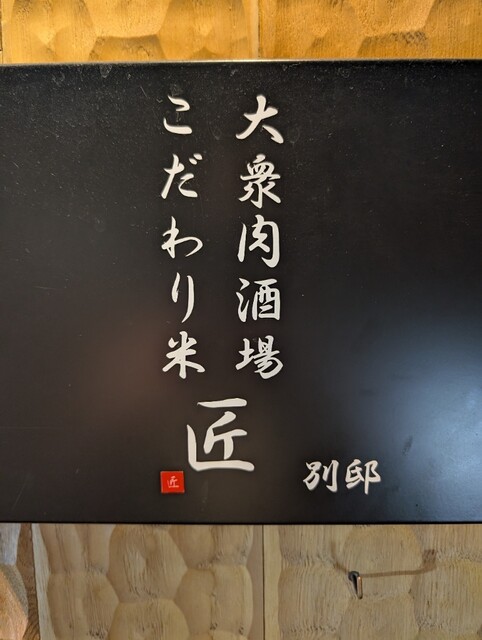 大衆肉酒場
こだわり米
匠
別邸
匠